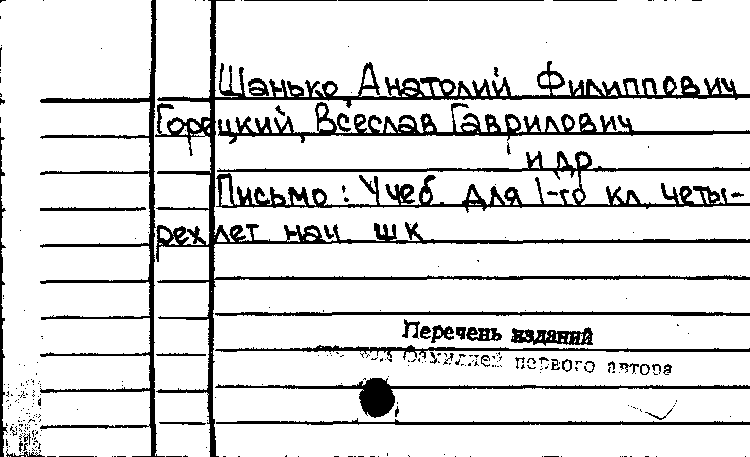 Шанько, Анатолий Филиппович
Горецкий, Всеслав Гаврилович
и др.
Письмо : Учеб. для 1-го кл. четы-
рехлет. нач. шк.
Перечень изданий
под фамилией первого автора